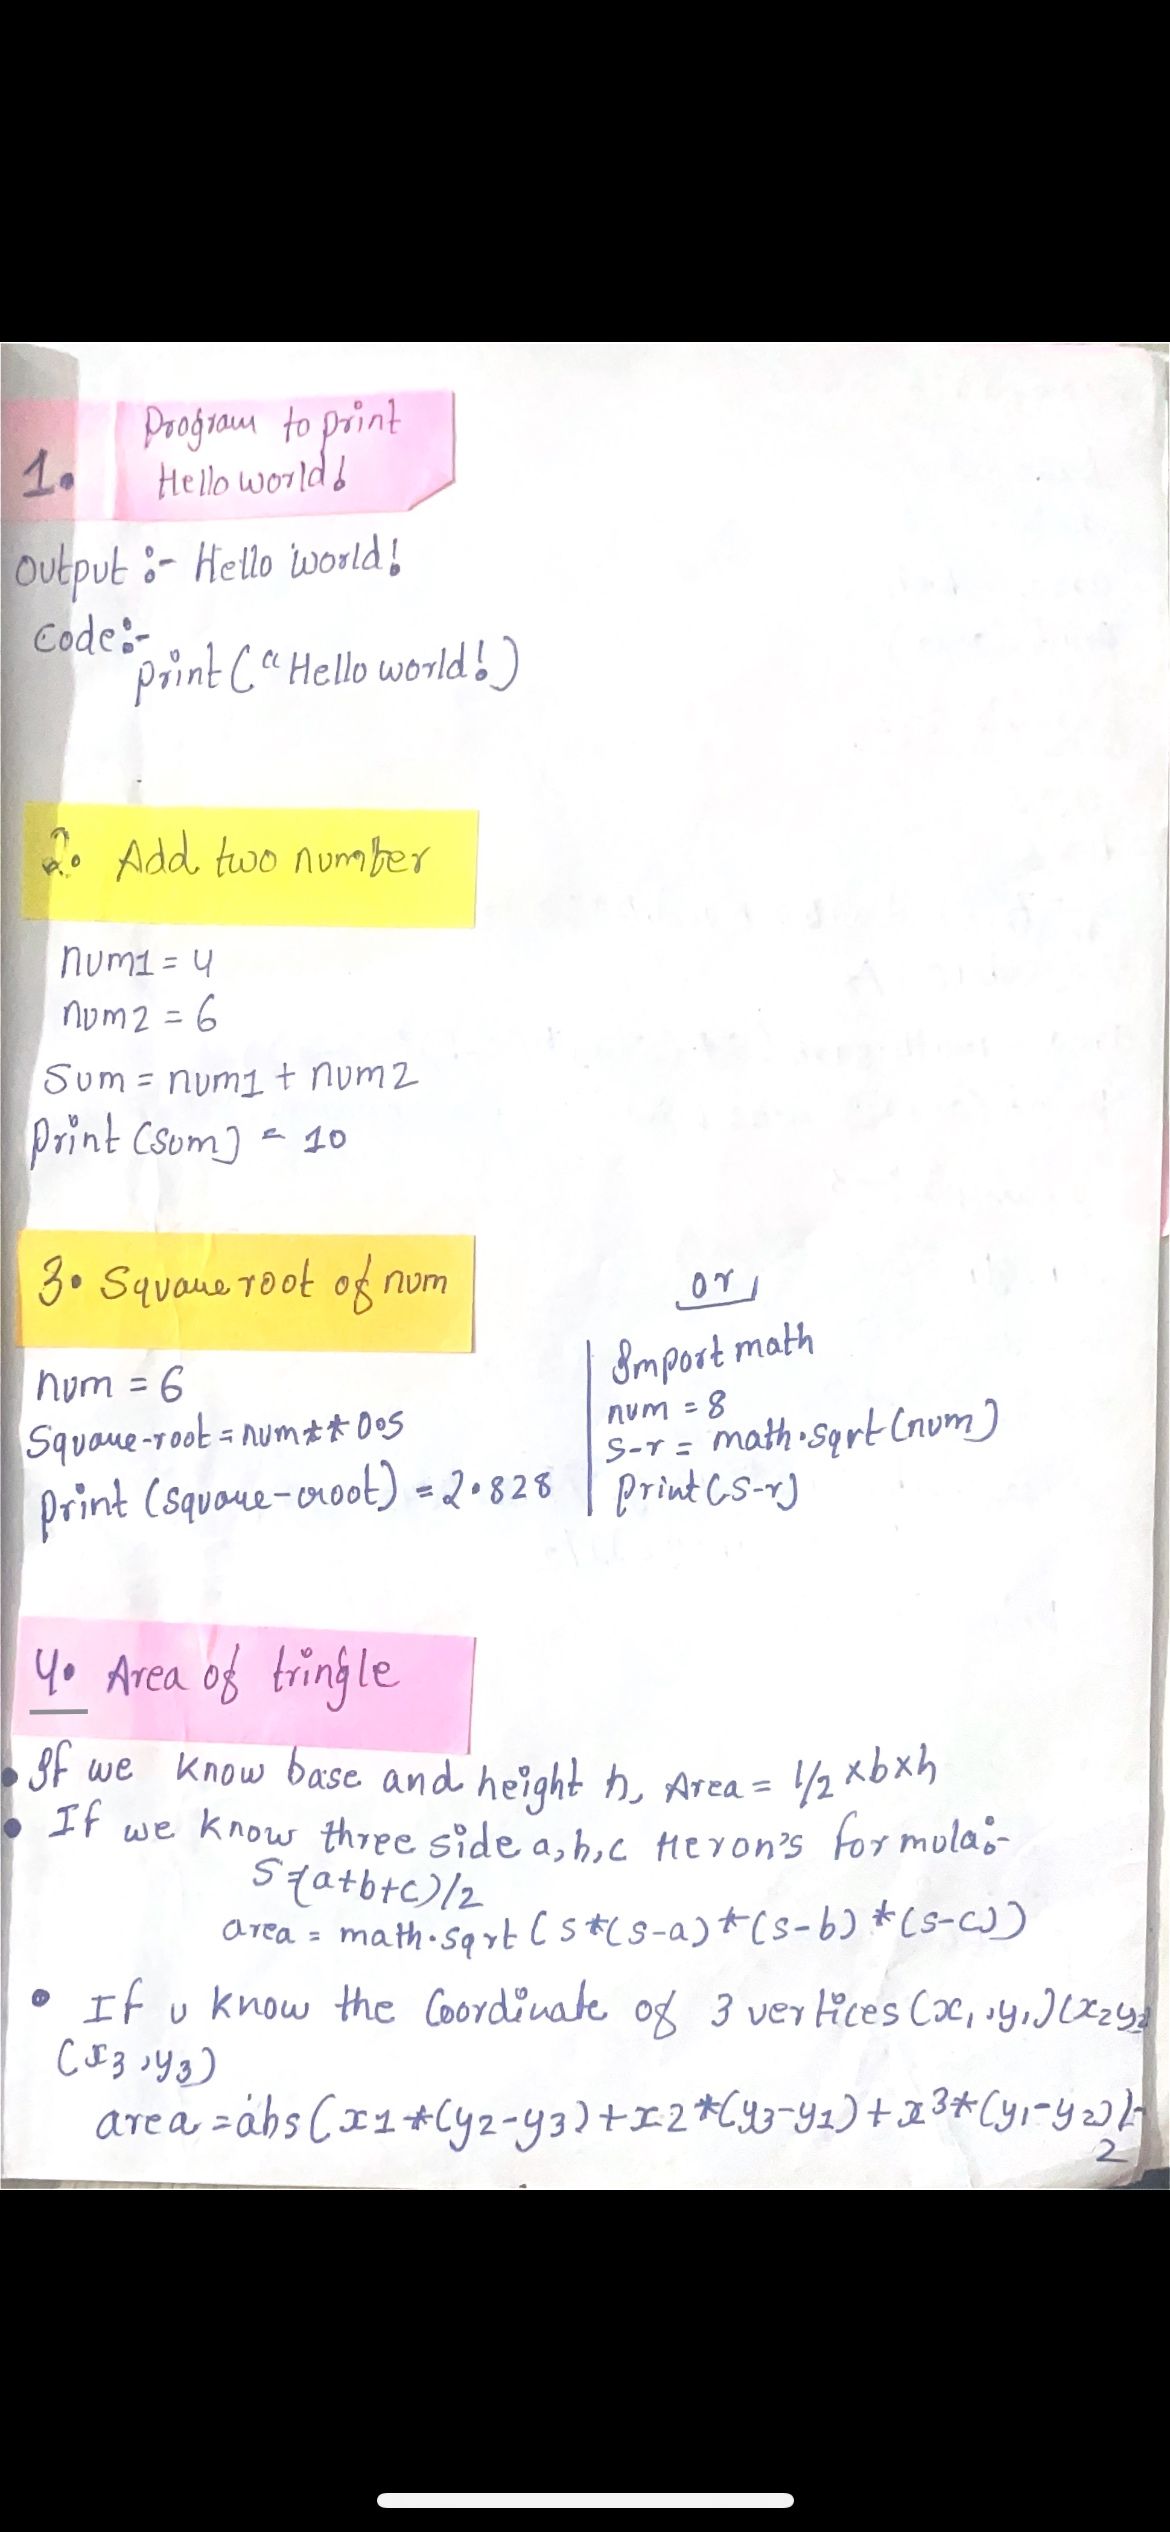 1.
Program to print
Hello world!
Output :- Hello world!
Code:-
print ("Hello world!)
2. Add two number
num1 = 4
num2 = 6
Sum = num1 + num2
print (sum) = 10
3. Square root of num
num = 6
Square-root = num**0.5
print (square-root) = 2.828
or
Import math
num = 8
s-r = math.sqrt (num)
print (s-r)
4. Area of tringle
• If we know base and height h, Area = 1/2 x b x h
• If we know three side a, b, c Heron's formula:-
S = (a+b+c)/2
area = math.sqrt (s*(s-a)*(s-b)*(s-c))
• If u know the Coordinate of 3 vertices (x1, y1) (x2 y2
(x3, y3)
area = abs (x1*(y2-y3)+x2*(y3-y1)+x3*(y1-y2)/
2